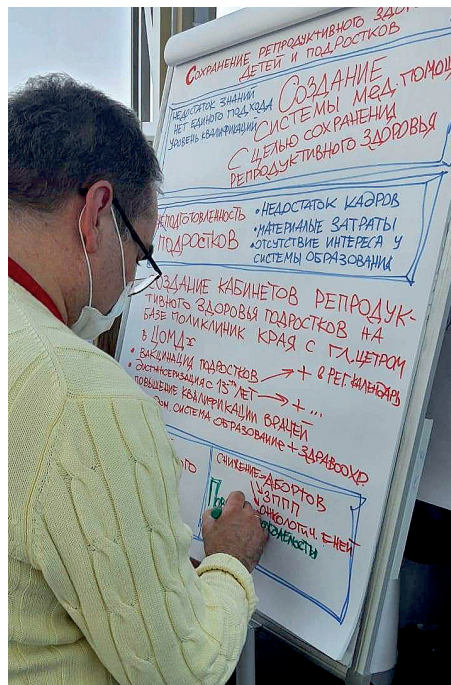 СОХРАНЕНИЕ РЕПРОДУКТИВНОГО
ДЕТЕЙ И ПОДРОСТКОВ
НЕДОСТАТОК ЗНАНИЙ
НЕТ ЕДИНОГО ПОДХОДА
УРОВЕНЬ КВАЛИФИКАЦИИ
СОЗДАНИЕ
СИСТЕМЫ МЕД. ПОМОЩ
С ЦЕЛЬЮ СОХРАНЕНИЯ
РЕПРОДУКТИВНОГО ЗДОРОВЬЯ
НЕПОДГОТОВЛЕННОСТЬ
ПОДРОСТКОВ
• НЕДОСТАТОК КАДРОВ
• МАТЕРИАЛЬНЫЕ ЗАТРАТЫ
• ОТСУТСТВИЕ ИНТЕРЕСА У
СИСТЕМЫ ОБРАЗОВАНИЯ
СОЗДАНИЕ КАБИНЕТОВ РЕПРОДУК-
ТИВНОГО ЗДОРОВЬЯ ПОДРОСТКОВ НА
БАЗЕ ПОЛИКЛИНИК КРАЯ С ГЛ. ЦЕТРОМ
В ЦОМДХ
• ВАКЦИНАЦИЯ ПОДРОСТКОВ → + В РЕГ. КАЛЕНДАРЬ
• ДИСПАНСЕРИЗАЦИЯ С 13ТИ ЛЕТ → + ...
ПОВЫШЕНИЕ КВАЛИФИКАЦИИ ВРАЧЕЙ
СИСТЕМА ОБРАЗОВАНИЕ + ЗДРАВООХР.
СНИЖЕНИЕ → АБОРТОВ
ЗППП
ОНКОЛОГИЧ.